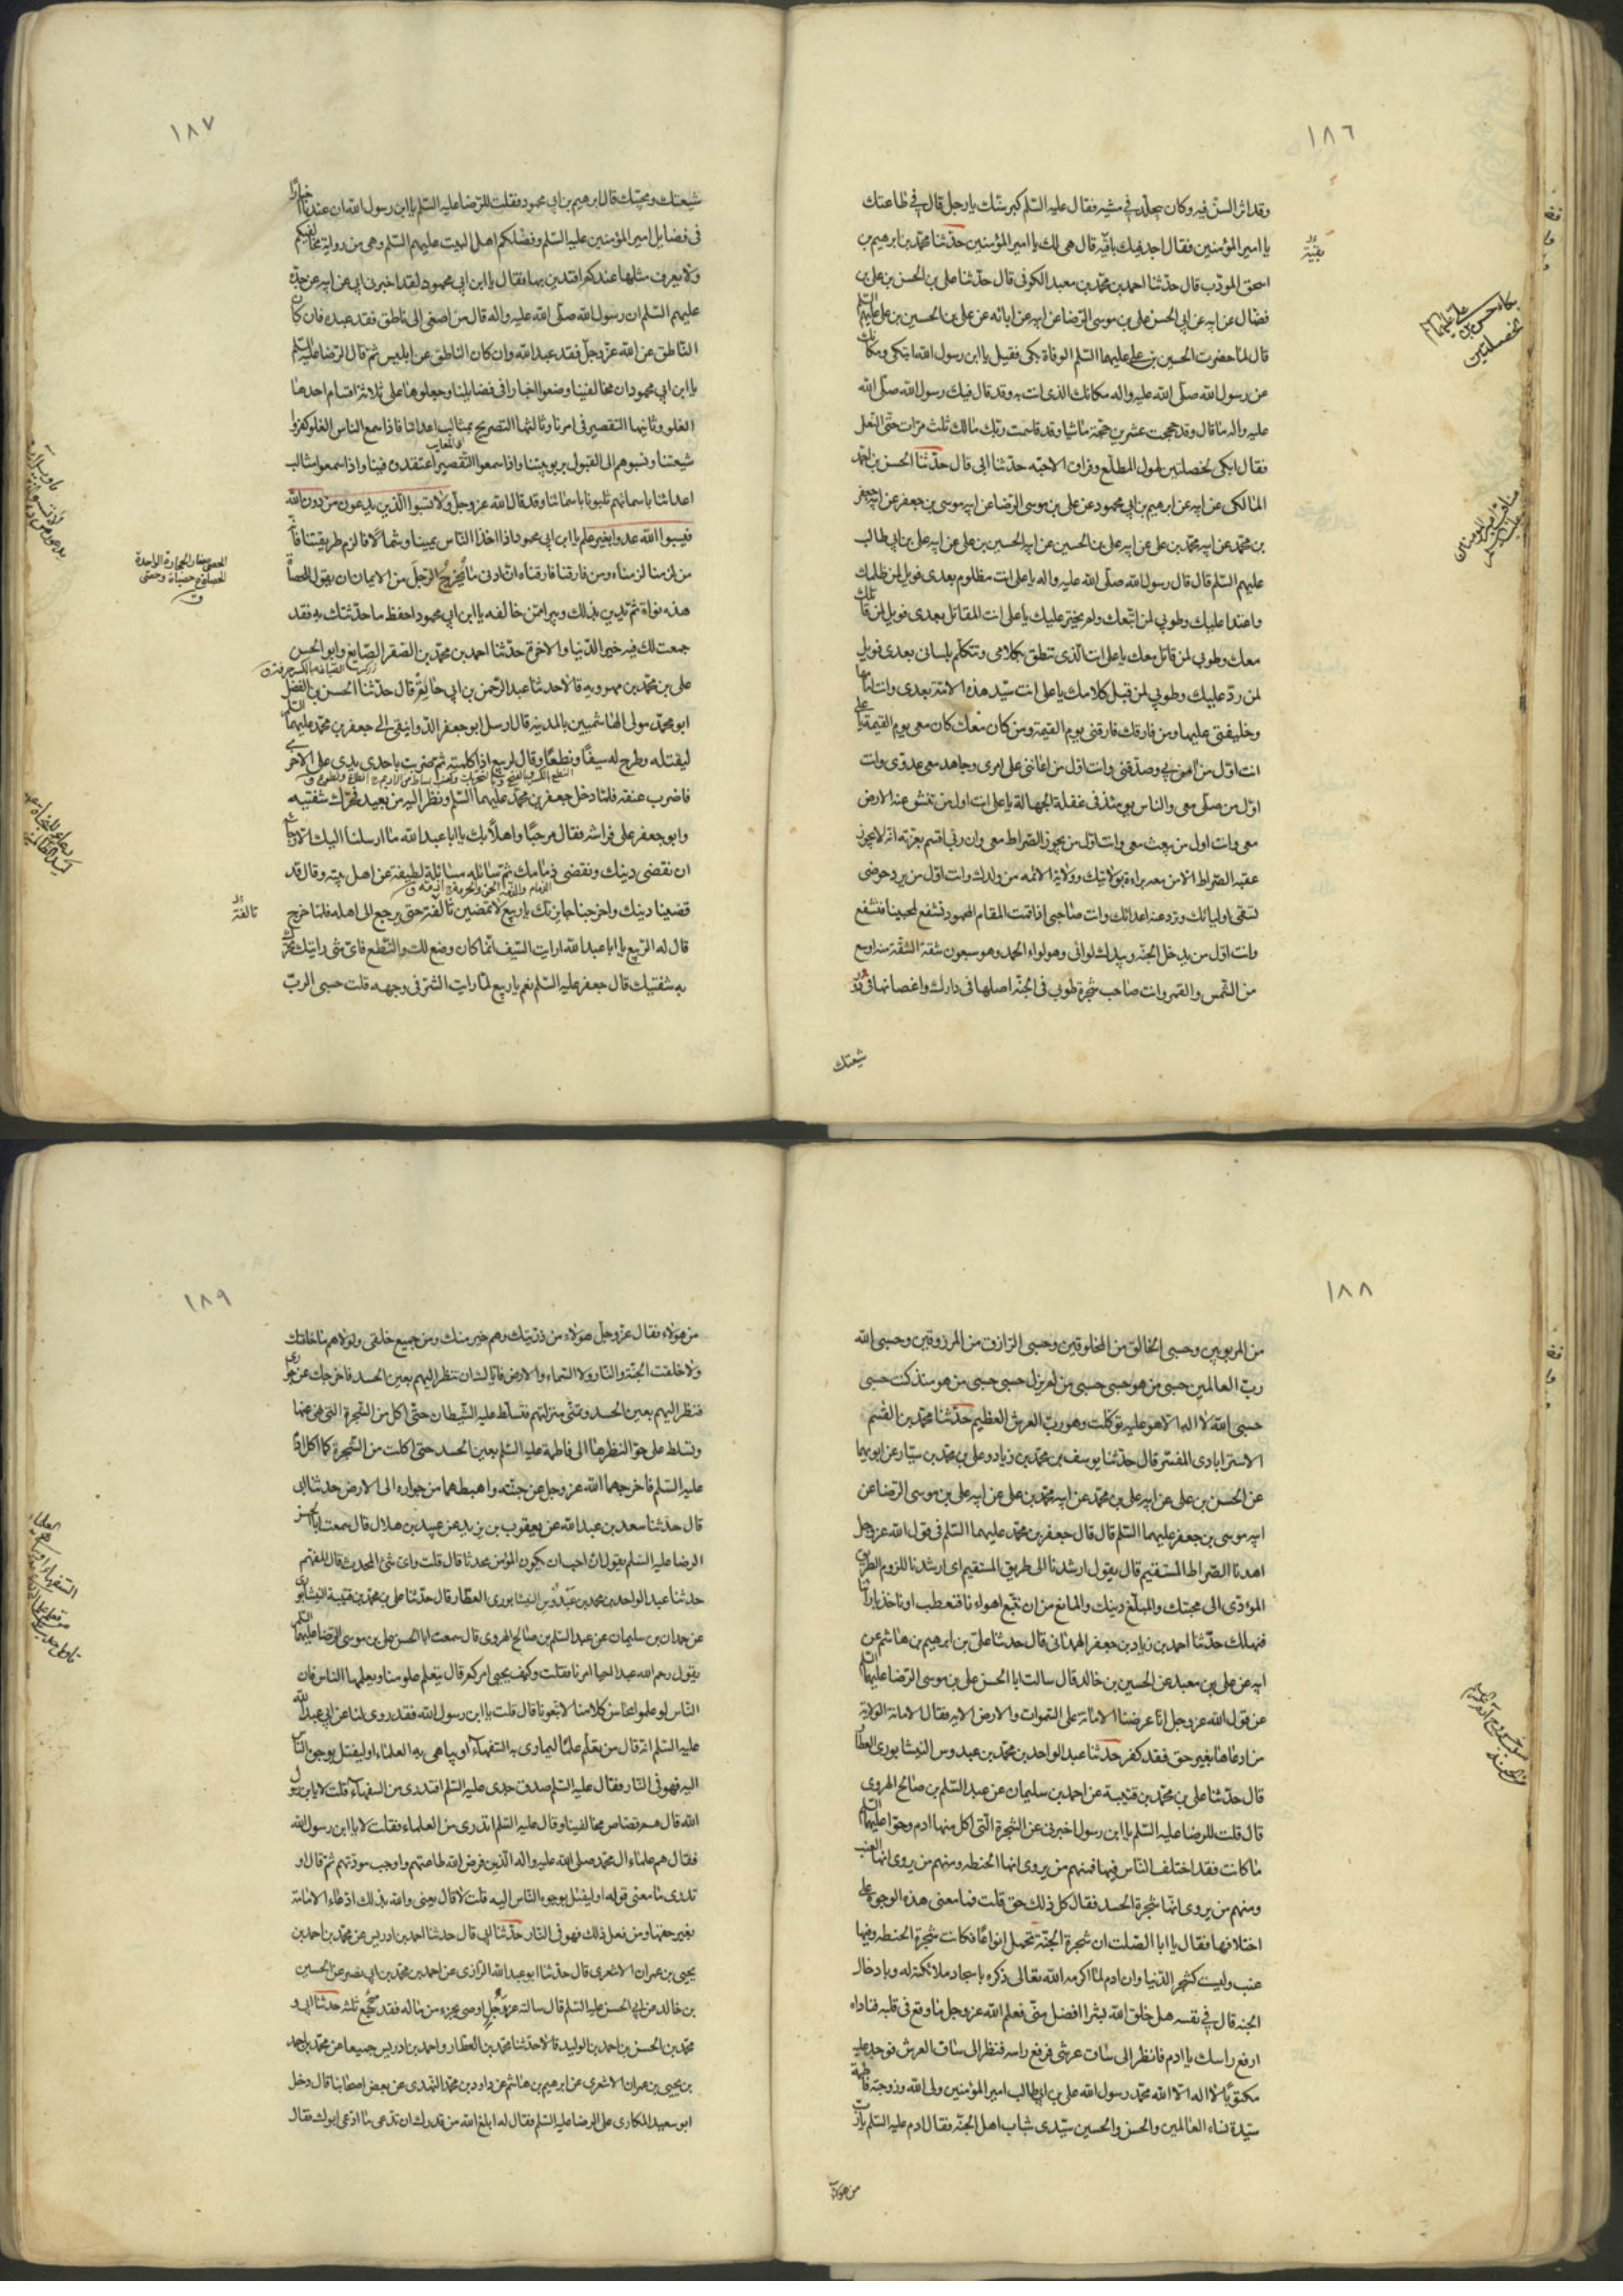 ١٨٦
وقد اثر السنّ فيه وكان يتجلّد في مشيه فقال عليه السّلم كبر سنّك يا رجل قال في طاعتك
يا امير المؤمنين فقال اجد فيك باقيه قال هى لك يا امير المؤمنين حدّثنا محمّد بن ابرهيم بن
بقيّة
اسحق المودّب قال حدّثنا احمد بن محمّد بن معبد الكوفى قال حدّثنا على بن الحسن بن على بن
فضّال عن ابيه عن ابى الحسن على بن موسى الرّضا عن ابيه عن ابائه عن على بن الحسين بن على عليهم السّلم
قال لمّا حضرت الحسين بن على عليهما السّلم الوفاة بكى فقيل يا ابن رسول الله اتبكى ومكانك
عن رسول الله صلّى الله عليه واله مكانك الذى انت به وقد قال فيك رسول الله صلّى الله
عليه واله ما قال وقد حججت عشرين حجّة ماشيا وقد قاسمت ربّك مالك ثلث مرّات حتّى النّعل
فقال ابكى لخصلتين لهول المطلّع وفراق الاحبّه حدّثنا ابى قال حدّثنا الحسن بن احمد
المالكى عن ابيه عن ابرهيم بن ابى محمود عن على بن موسى الرّضا عن ابيه موسى بن جعفر عن ابيه جعفر
بن محمّد عن ابيه محمّد بن على عن ابيه على بن الحسين عن ابيه الحسين بن على عن ابيه على بن ابى طالب
عليهم السّلم قال قال رسول الله صلّى الله عليه واله يا على انت مظلوم بعدى فويل لمن ظلمك
واعتدا عليك وطوبى لمن اتّبعك ولم يختر عليك يا على انت المقاتل بعدى فويل لمن قاتلك
معك وطوبى لمن قاتل معك يا على انت الّذى تنطق بكلامى وتتكلّم بلسانى بعدى فويل
لمن ردّ عليك وطوبى لمن قبل كلامك يا على انت سيّد هذه الامّة بعدى وانت امامها
وخليفتى عليها ومن فارقك فارقنى يوم القيمة ومن كان معك كان معى يوم القيمة يا على
انت اوّل من امن بى وصدّقنى وانت اوّل من اعاننى على امرى وجاهد معى عدوّى وانت
اوّل من صلّى معى والناس يومئذ فى غفلة الجهالة يا على انت اول من تنشق عنه الارض
معى وانت اول من يبعث معى وانت اوّل من يجوز الصّراط معى وان ربى اقسم بعزّته انه لا يجوز
عقبه الصّراط الا من معه براءة بولايتك وولاية الائمه من ولدك وانت اوّل من يرد حوضى
تسقى اوليائك وتزود عنه اعدائك وانت صاحبى اذا قمت المقام المحمود نشفع لمحبينا فنشفع
وانت اوّل من يدخل الجنّه وبيدك لوائى وهو لواء الحمد وهو سبعون شقّة الشقّة منه اوسع
من الشّمس والقمر وانت صاحب شجرة طوبى فى الجنّه اصلها فى دارك واغصانها فى دور
شيعتك
بكاء حسين بن على عليهما السلم لخصلتين
١٨٧
شيعتك ومحبّيك قال ابرهيم بن ابى محمود فقلت للرّضا عليه السّلم يا ابن رسول الله ان عندنا اخبارا
فى فضايل امير المؤمنين عليه السّلم وفضلكم اهل البيت عليهم السّلم وهى من رواية مخالفيكم
ولا يعرف مثلها عندكم افندين بها فقال يا ابن ابى محمود لقد اخبرنى ابى عن ابيه عن جدّه
عليهم السّلم ان رسول الله صلّى الله عليه واله قال من اصغى الى ناطق فقد عبده فان كان
النّاطق عن الله عزّ وجلّ فقد عبد الله وان كان الناطق عن ابليس فقد عبد ابليس ثمّ قال الرّضا عليه السّلم
يا ابن ابى محمود ان مخالفينا وضعوا اخبارا فى فضايلنا وجعلوها على ثلاثة اقسام احدها
الغلو وثانيها التقصير فى امرنا وثالثها التصريح بمثالب اعدائنا فاذا سمع الناس الغلو كفّروا
شيعتنا ونسبوهم الى القول بربوبيتنا واذا سمعوا التّقصير اعتقدوه فينا واذا سمعوا مثالب
اعدائنا باسمائهم ثلبونا باسمائنا وقد قال الله عز وجل ولا تسبوا الّذين يدعون من دون الله
فيسبوا الله عدوا بغير علم يا ابن ابى محمود اذا اخذ النّاس يمينا وشمالا فالزم طريقتنا فانّه
من لزمنا لزمناه ومن فارقنا فارقناه انّ ادنى ما يخرج الرّجل من الايمان ان يقول للحصاة
هذه نواة ثمّ يدين بذلك ويبرا ممّن خالفه يا ابن ابى محمود احفظ ما حدّثتك به فقد
جمعت لك فيه خير الدّنيا والاخرة حدّثنا احمد بن محمّد بن الصّقر الصّايغ وابو الحسن
على بن محمّد بن مهرويه قالا حدثنا عبد الرّحمن بن ابى حاتم قال حدّثنا الحسن بن الفضل
ابو محمّد مولى الهاشميين بالمدينه قال ارسل ابو جعفر الدّوانيقى الى جعفر بن محمّد عليهما السّلم
ليقتله وطرح له سيفًا ونطعًا وقال لربيع اذا كلّمته ثمّ ضربت باحدى يدى على الاخرى
فاضرب عنقه فلمّا دخل جعفر بن محمّد عليهما السّلم ونظر اليه من بعيد تحرّك شفتيه
وابو جعفر على فراشه فقال مرحبًا واهلًا بك يا ابا عبد الله ما ارسلنا اليك الا رجاء
ان نقضى دينك ونقضى ذمامك ثمّ سائله مسائلة لطيفة عن اهل بيته وقال قد
قضينا دينك واخرجنا جايزتك يا ربيع لا تمضين ثالثة حتى يرجع الى اهله فلمّا خرج
ثالثة
قال له الرّبيع يا ابا عبد الله ارايت السّيف انّما كان وضع لك والنّطع فاىّ شى رايتك تحرّك
به شفتيك قال جعفر عليه السّلم نعم يا ربيع لمّا رايت الشّر فى وجهه قلت حسبى الربّ
الحصى صغار الحجارة الواحدة
الحصاة ج حصيات وحصى
ق
١٨٨
من المربوبين وحسبى الخالق من المخلوقين وحسبى الرّازق من المرزوقين وحسبى الله
ربّ العالمين حسبى من هو حسبى حسبى من لم يزل حسبى حسبى من هو منذ كنت حسبى
حسبى الله لا اله الا هو عليه توكّلت وهو ربّ العرش العظيم حدّثنا محمّد بن القسم
الاسترابادى المفسّر قال حدّثنا يوسف بن محمّد بن زياد وعلى بن محمّد بن سيّار عن ابويهما
عن الحسن بن على عن ابيه على بن محمّد عن ابيه محمّد بن على عن ابيه على بن موسى الرّضا عن
ابيه موسى بن جعفر عليهما السّلم قال قال جعفر بن محمّد عليهما السّلم فى قول الله عزّ وجل
اهدنا الصّراط المستقيم قال يقول ارشدنا الى طريق المستقيم اى ارشدنا للزوم الطريق
المؤدّى الى محبّتك والمبلّغ دينك والمانع من ان نتّبع اهواءنا فنعطب او ناخذ بارائنا
فنهلك حدّثنا احمد بن زياد بن جعفر الهمدانى قال حدثنا على بن ابرهيم بن هاشم عن
ابيه عن على بن معبد عن الحسين بن خالد قال سالت ابا الحسن على بن موسى الرّضا عليهما السّلم
عن قول الله عز وجل انّا عرضنا الامانة على السّموات والارض الايه فقال الامانة الولاية
من ادعاها بغير حق فقد كفر حدثنا عبد الواحد بن محمّد بن عبدوس النّيشابورى العطّار
قال حدّثنا على بن محمّد بن قتيبة عن احمد بن سليمان عن عبد السّلم بن صالح الهروى
قال قلت للرضا عليه السّلم يا ابن رسول اخبرنى عن الشجرة الّتى اكل منها ادم وحوّا عليهما السّلم
ما كانت فقد اختلف النّاس فيها فمنهم من يروى انها الحنطه ومنهم من يروى انها العنب
ومنهم من يروى انّها شجرة الحسد فقال كل ذلك حق قلت فما معنى هذه الوجوه على
اختلافها فقال يا ابا الصّلت ان شجرة الجنّة تحمل انواعًا فكانت شجرة الحنطه وفيها
عنب وليست كشجر الدّنيا وان ادم لمّا اكرمه الله تعالى ذكره باسجاد ملائكته له وبادخاله
الجنه قال فى نفسه هل خلق الله بشرا افضل منّى فعلم الله عز وجل ما وقع فى قلبه فناداه
ارفع راسك يا ادم فانظر الى ساق عرشى فرفع راسه فنظر الى ساق العرش فوجد عليه
مكتوبًا لا اله الّا الله محمّد رسول الله على بن ابيطالب امير المؤمنين ولى الله وزوجته فاطمة
سيّدة نساء العالمين والحسن والحسين سيّدى شباب اهل الجنّه فقال ادم عليه السّلم يا ربّ
من هولاء
١٨٩
من هؤلاء فقال عزّ وجلّ هؤلاء من ذرّيتك وهم خير منك ومن جميع خلقى ولولاهم ما خلقتك
ولا خلقت الجنّة والنّار ولا السّماء والارض فايّاك ان تنظر اليهم بعين الحسد فاخرجك عن جوارى
فنظر اليهم بعين الحسد وتمنّى منزلتهم فتسلّط عليه الشّيطان حتّى اكل من الشّجرة التى نهى عنها
وتسلط على حوّا لنظرها الى فاطمة عليه السّلم بعين الحسد حتى اكلت من الشّجرة كما اكل ادم
عليه السّلم فاخرجهما الله عز وجل عن جنّته واهبطهما من جواره الى الارض حدثنا ابى
قال حدّثنا سعد بن عبد الله عن يعقوب بن يزيد عن عبيد بن هلال قال سمعت ابا الحسن
الرضا عليه السّلم يقول انّى احب ان يكون المؤمن محدثا قال قلت واى شئ المحدث قال المفهّم
حدثنا عبد الواحد بن محمد بن عبدوس النيشابورى العطّار قال حدّثنا على بن محمّد بن قتيبة النيشابورى
عن حمدان بن سليمان عن عبد السّلم بن صالح الهروى قال سمعت ابا الحسن على بن موسى الرّضا عليهما السّلم
يقول رحم الله عبدا احيا امرنا فقلت وكيف يحيى امركم قال يتعلم علومنا ويعلّمها الناس فان
النّاس لو علموا محاسن كلامنا لاتّبعونا قال قلت يا ابن رسول الله فقد روى لنا عن ابى عبد الله
عليه السّلم انه قال من تعلّم علمًا ليمارى به السّفهاء او يباهى به العلماء او ليقبل بوجوه النّاس
اليه فهو فى النّار فقال عليه السّلم صدق جدى عليه السّلم افتدرى من السفهاء قلت لا يا ابن رسول
الله قال هم قصّاص مخالفينا وقال عليه السّلم اتدرى من العلماء فقلت لا يا ابن رسول الله
فقال هم علماء ال محمّد صلى الله عليه واله الّذين فرض الله طاعتهم واوجب مودّتهم ثمّ قال او
تدرى ما معنى قوله او ليقبل بوجوه النّاس اليه قلت لا قال يعنى والله بذلك ادّعاء الامامة
بغير حقها ومن فعل ذلك فهو فى النّار حدّثنا ابى قال حدثنا احمد بن ادريس عن محمّد بن احمد بن
يحيى بن عمران الاشعرى قال حدّثنا ابو عبد الله الرّازى عن احمد بن محمّد بن ابى نصر عن الحسين
بن خالد عن ابى الحسن عليه السّلم قال سالته عن رجل اوصى بجزء من ماله فقد سبع ثلثه حدثنا ابى و
محمّد بن الحسن بن احمد بن الوليد قالا حدّثنا محمّد بن العطّار واحمد بن ادريس جميعا عن محمّد بن احمد
بن يحيى بن عمران الاشعرى عن ابرهيم بن هاشم عن داود بن محمّد النّهدى عن بعض اصحابنا قال دخل
ابو سعيد المكارى على الرضا عليه السّلم فقال له ابلغ الله من قدرك ان تدّعى ما ادّعى ابوك فقال